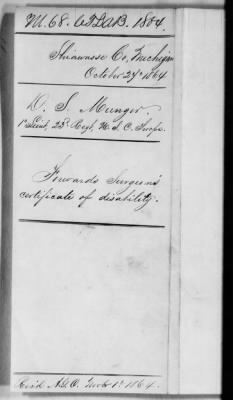 M. 68. C.T. Div. 1864.
Shiawasse Co, Michigan
October 27th 1864
D. S. Munger.
1st Lieut, 28th Regt, U.S.C. Troops.
Forwards Surgeon's
certificate of disability.
Rec'd A.G.O. Novb 1st 1864.